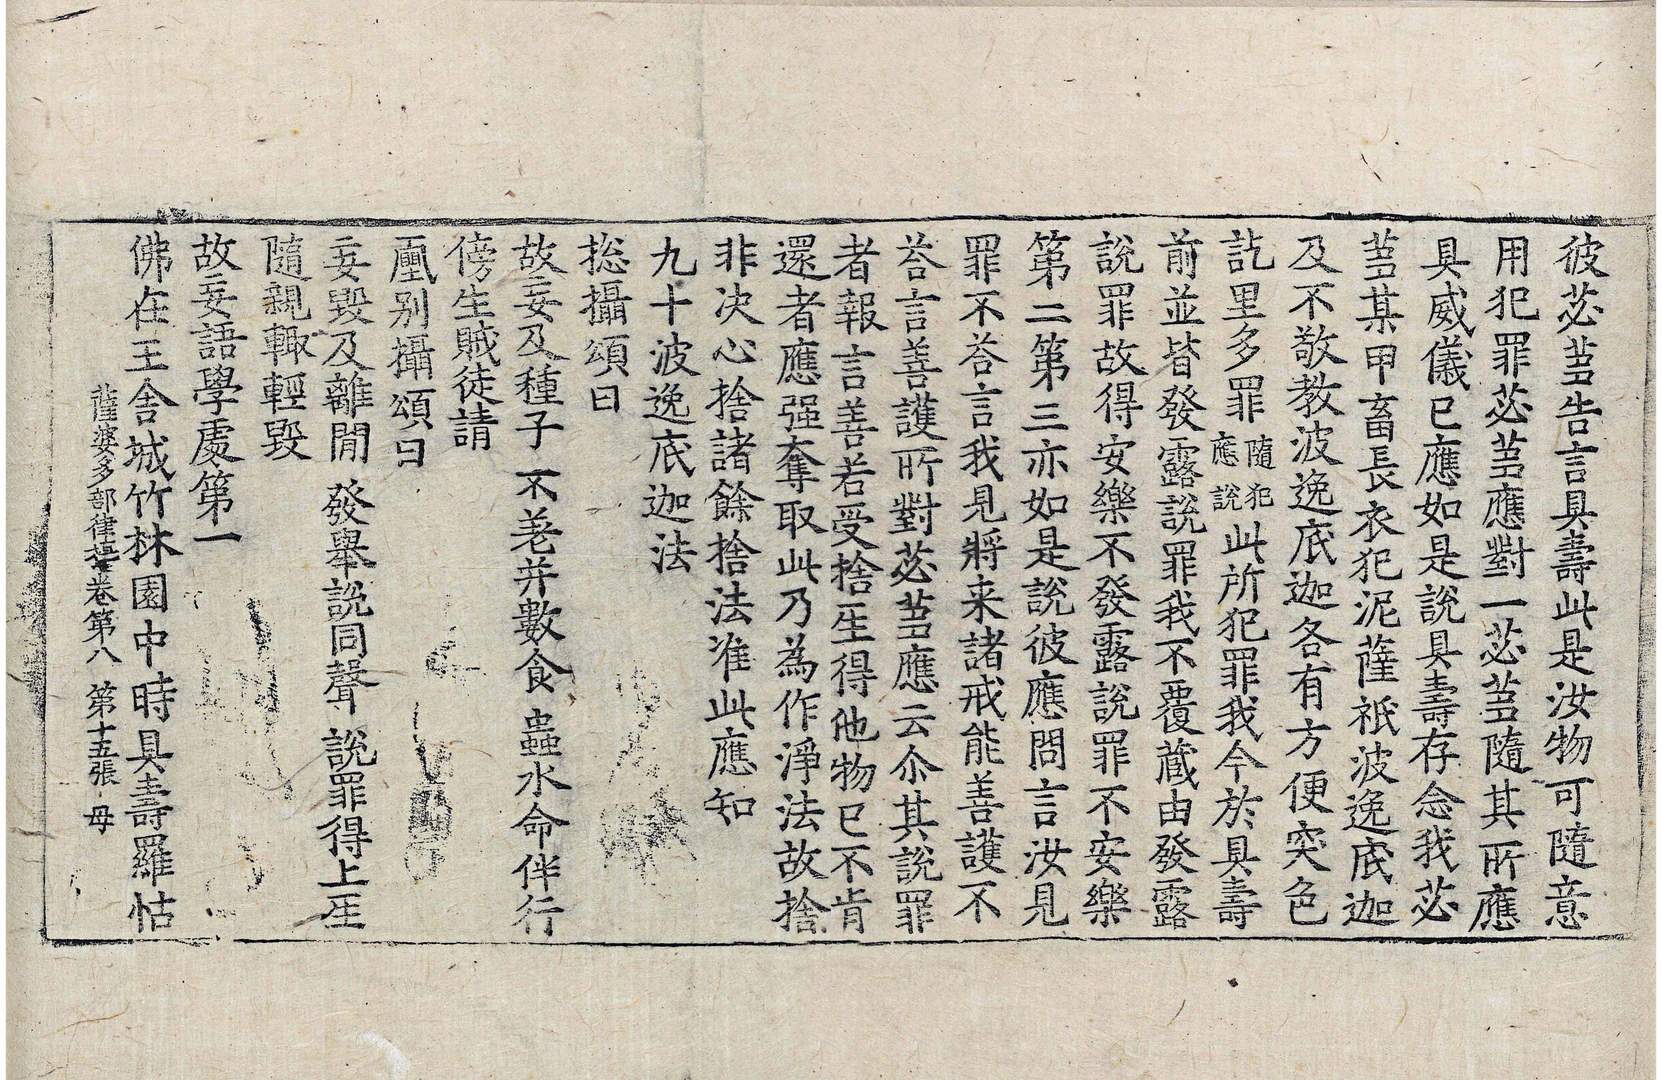 彼苾蒭告言具壽此是汝物可隨意
用犯罪苾蒭應對一苾蒭隨其所應
具威儀已應如是說具壽存念我苾
蒭某甲畜長衣犯泥薩祇波逸底迦
及不敬教波逸底迦各有方便突色
訖里多罪隨犯應說此所犯罪我今於具壽
前並皆發露說罪我不覆藏由發露
說罪故得安樂不發露說罪不安樂
第二第三亦如是說彼應問言汝見
罪不荅言我見將来諸戒能善護不
荅言善護所對苾蒭應云尒其說罪
者報言善若受捨生得他物已不肯
還者應强奪取此乃為作淨法故捨
非决心捨諸餘捨法准此應知
九十波逸底迦法
揔攝頌曰
故妄及種子 不差并數食 蟲水命伴行
傍生賊徒請
初別攝頌曰
妄毀及離間 發舉說同聲 說罪得上座
隨親輙輕毀
故妄語學處第一
佛在王舍城竹林園中時具壽羅怙
薩婆多部律攝卷第八 第十五張 母